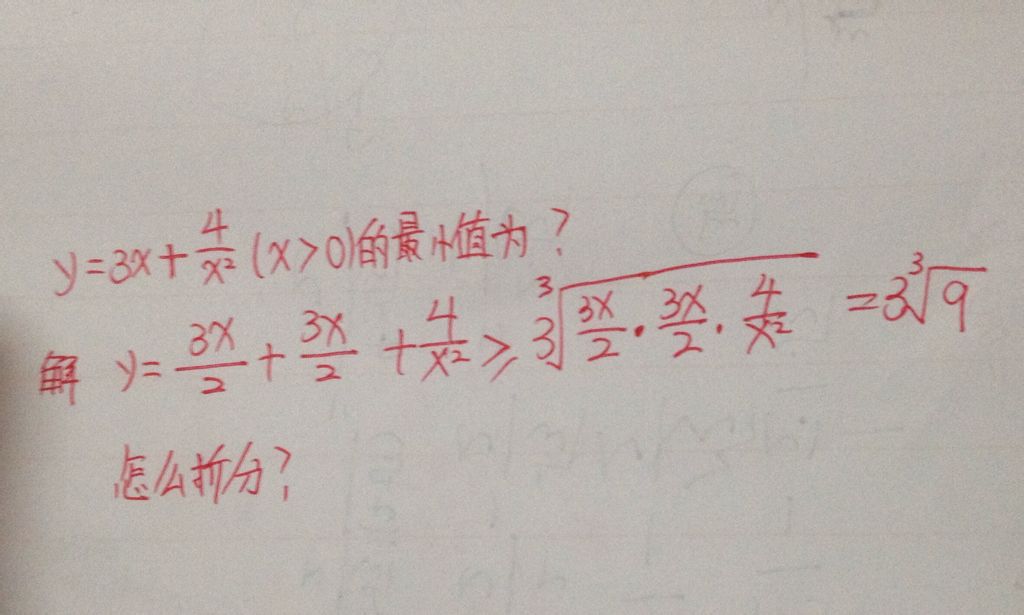 y=3x+4/x² (x>0)的最小值为?
解 y=3x/2+3x/2+4/x²≥3∛(3x/2·3x/2·4/x²)=3∛9
怎么折分?